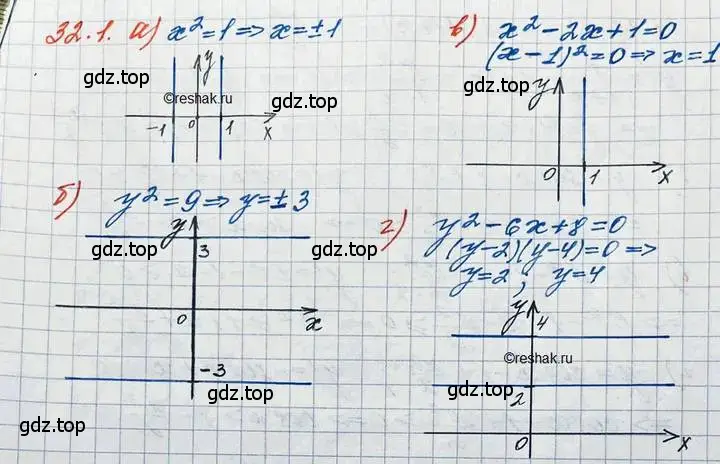 32.1. а) x²=1 => x=±1
gdz.top
y
©reshak.ru
gdz.top
-1 0 1 x
в) x²-2x+1=0
(x-1)²=0 => x=1
gdz.top
y
0 1 x
б) y²=9 => y=±3
gdz.top
y
3
gdz.top
0 x
-3
gdz.top
gdz.top
г) y²-6x+8=0
(y-2)(y-4)=0 =>
y=2; y=4
gdz.top
y
4
©reshak.ru
2
gdz.top
0 x